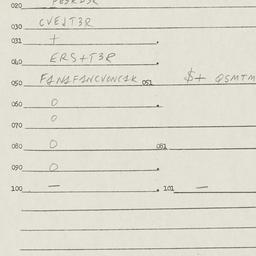 020
030 CVEJT3R
031 +
040 ERS+T3R
050 FANAFANCVONCAK 051 $+ QSMTM
060 0
070 0
080 0 081
090 0
100 — 101 —